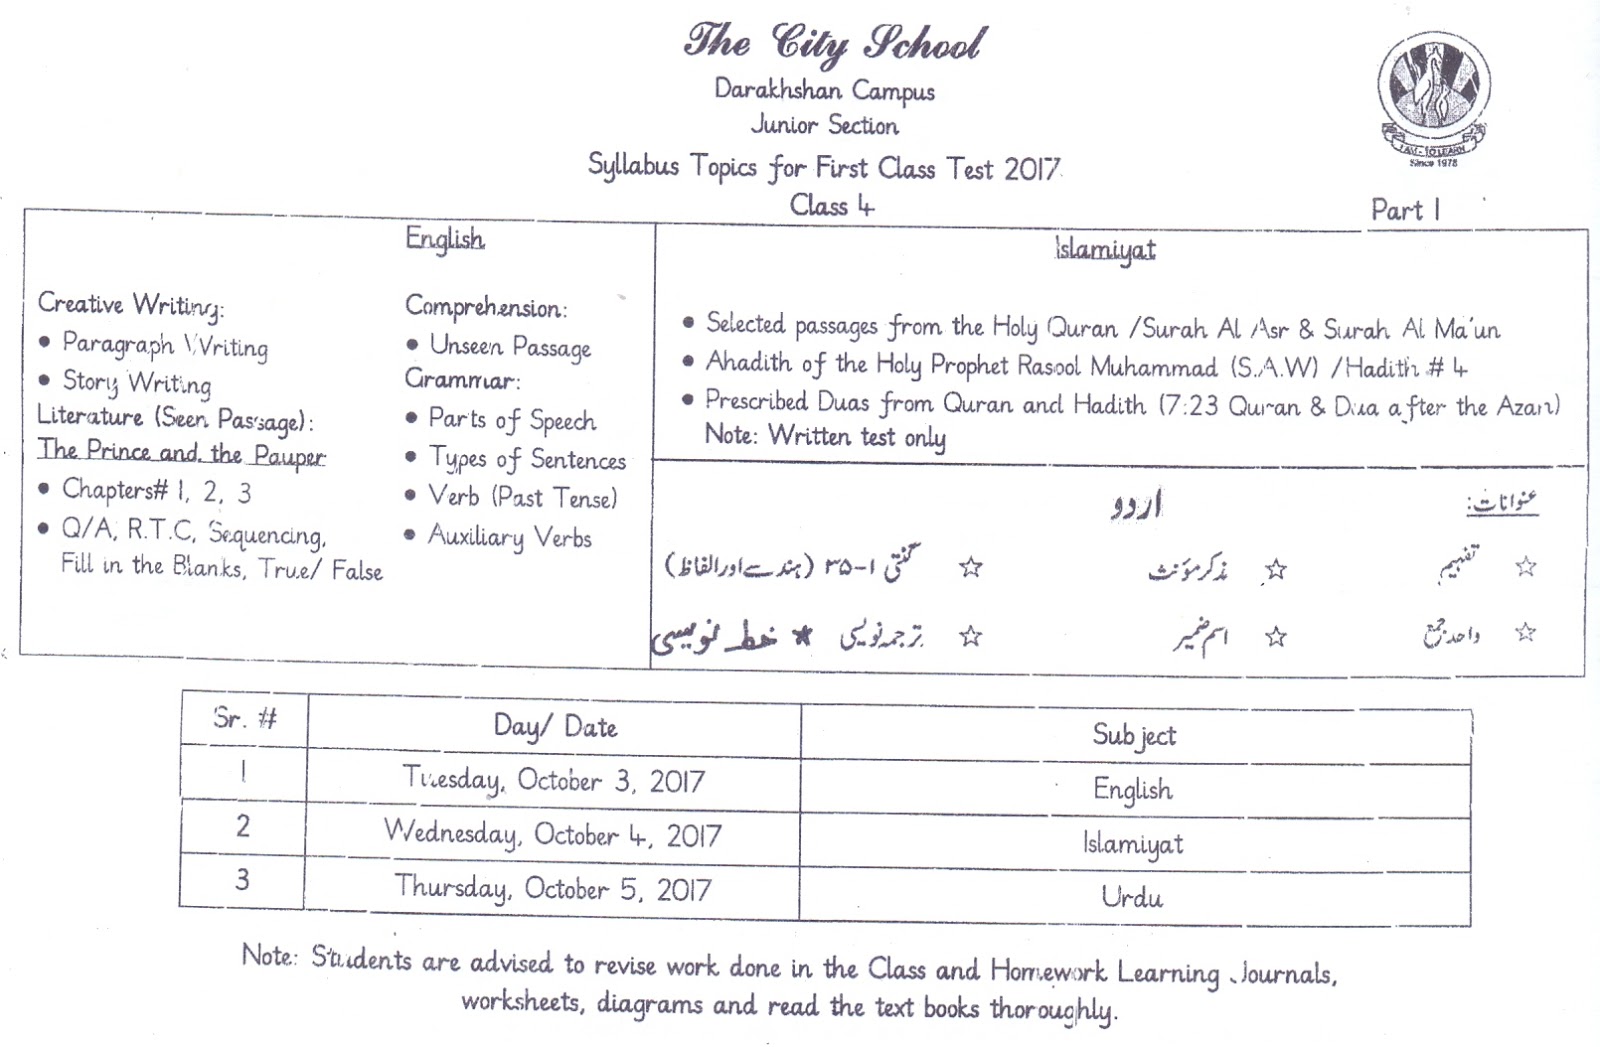 The City School
Darakhshan Campus
Junior Section
Syllabus Topics for First Class Test 2017
Class 4
Part 1
I AM - TO LEARN
Since 1978
English
Creative Writing:
• Paragraph Writing
• Story Writing
Literature (Seen Passage):
The Prince and the Pauper
• Chapters# 1, 2, 3
• Q/A, R.T.C, Sequencing,
Fill in the Blanks, True/ False
Comprehension:
• Unseen Passage
Grammar:
• Parts of Speech
• Types of Sentences
• Verb (Past Tense)
• Auxiliary Verbs
Islamiyat
• Selected passages from the Holy Quran /Surah Al Asr & Surah Al Ma'un
• Ahadith of the Holy Prophet Rasool Muhammad (S.A.W) /Hadith # 4
• Prescribed Duas from Quran and Hadith (7:23 Quran & Dua after the Azan)
Note: Written test only
اردو
عنوانات:
☆ تفہیم ☆ مذکر مؤنث ☆ گنتی ۱-۳۵ (ہندسے اور الفاظ)
☆ واحد جمع ☆ اسم ضمیر ☆ ترجمہ نویسی * خط نویسی
Sr. # Day/ Date Subject
1 Tuesday, October 3, 2017 English
2 Wednesday, October 4, 2017 Islamiyat
3 Thursday, October 5, 2017 Urdu
Note: Students are advised to revise work done in the Class and Homework Learning Journals,
worksheets, diagrams and read the text books thoroughly.